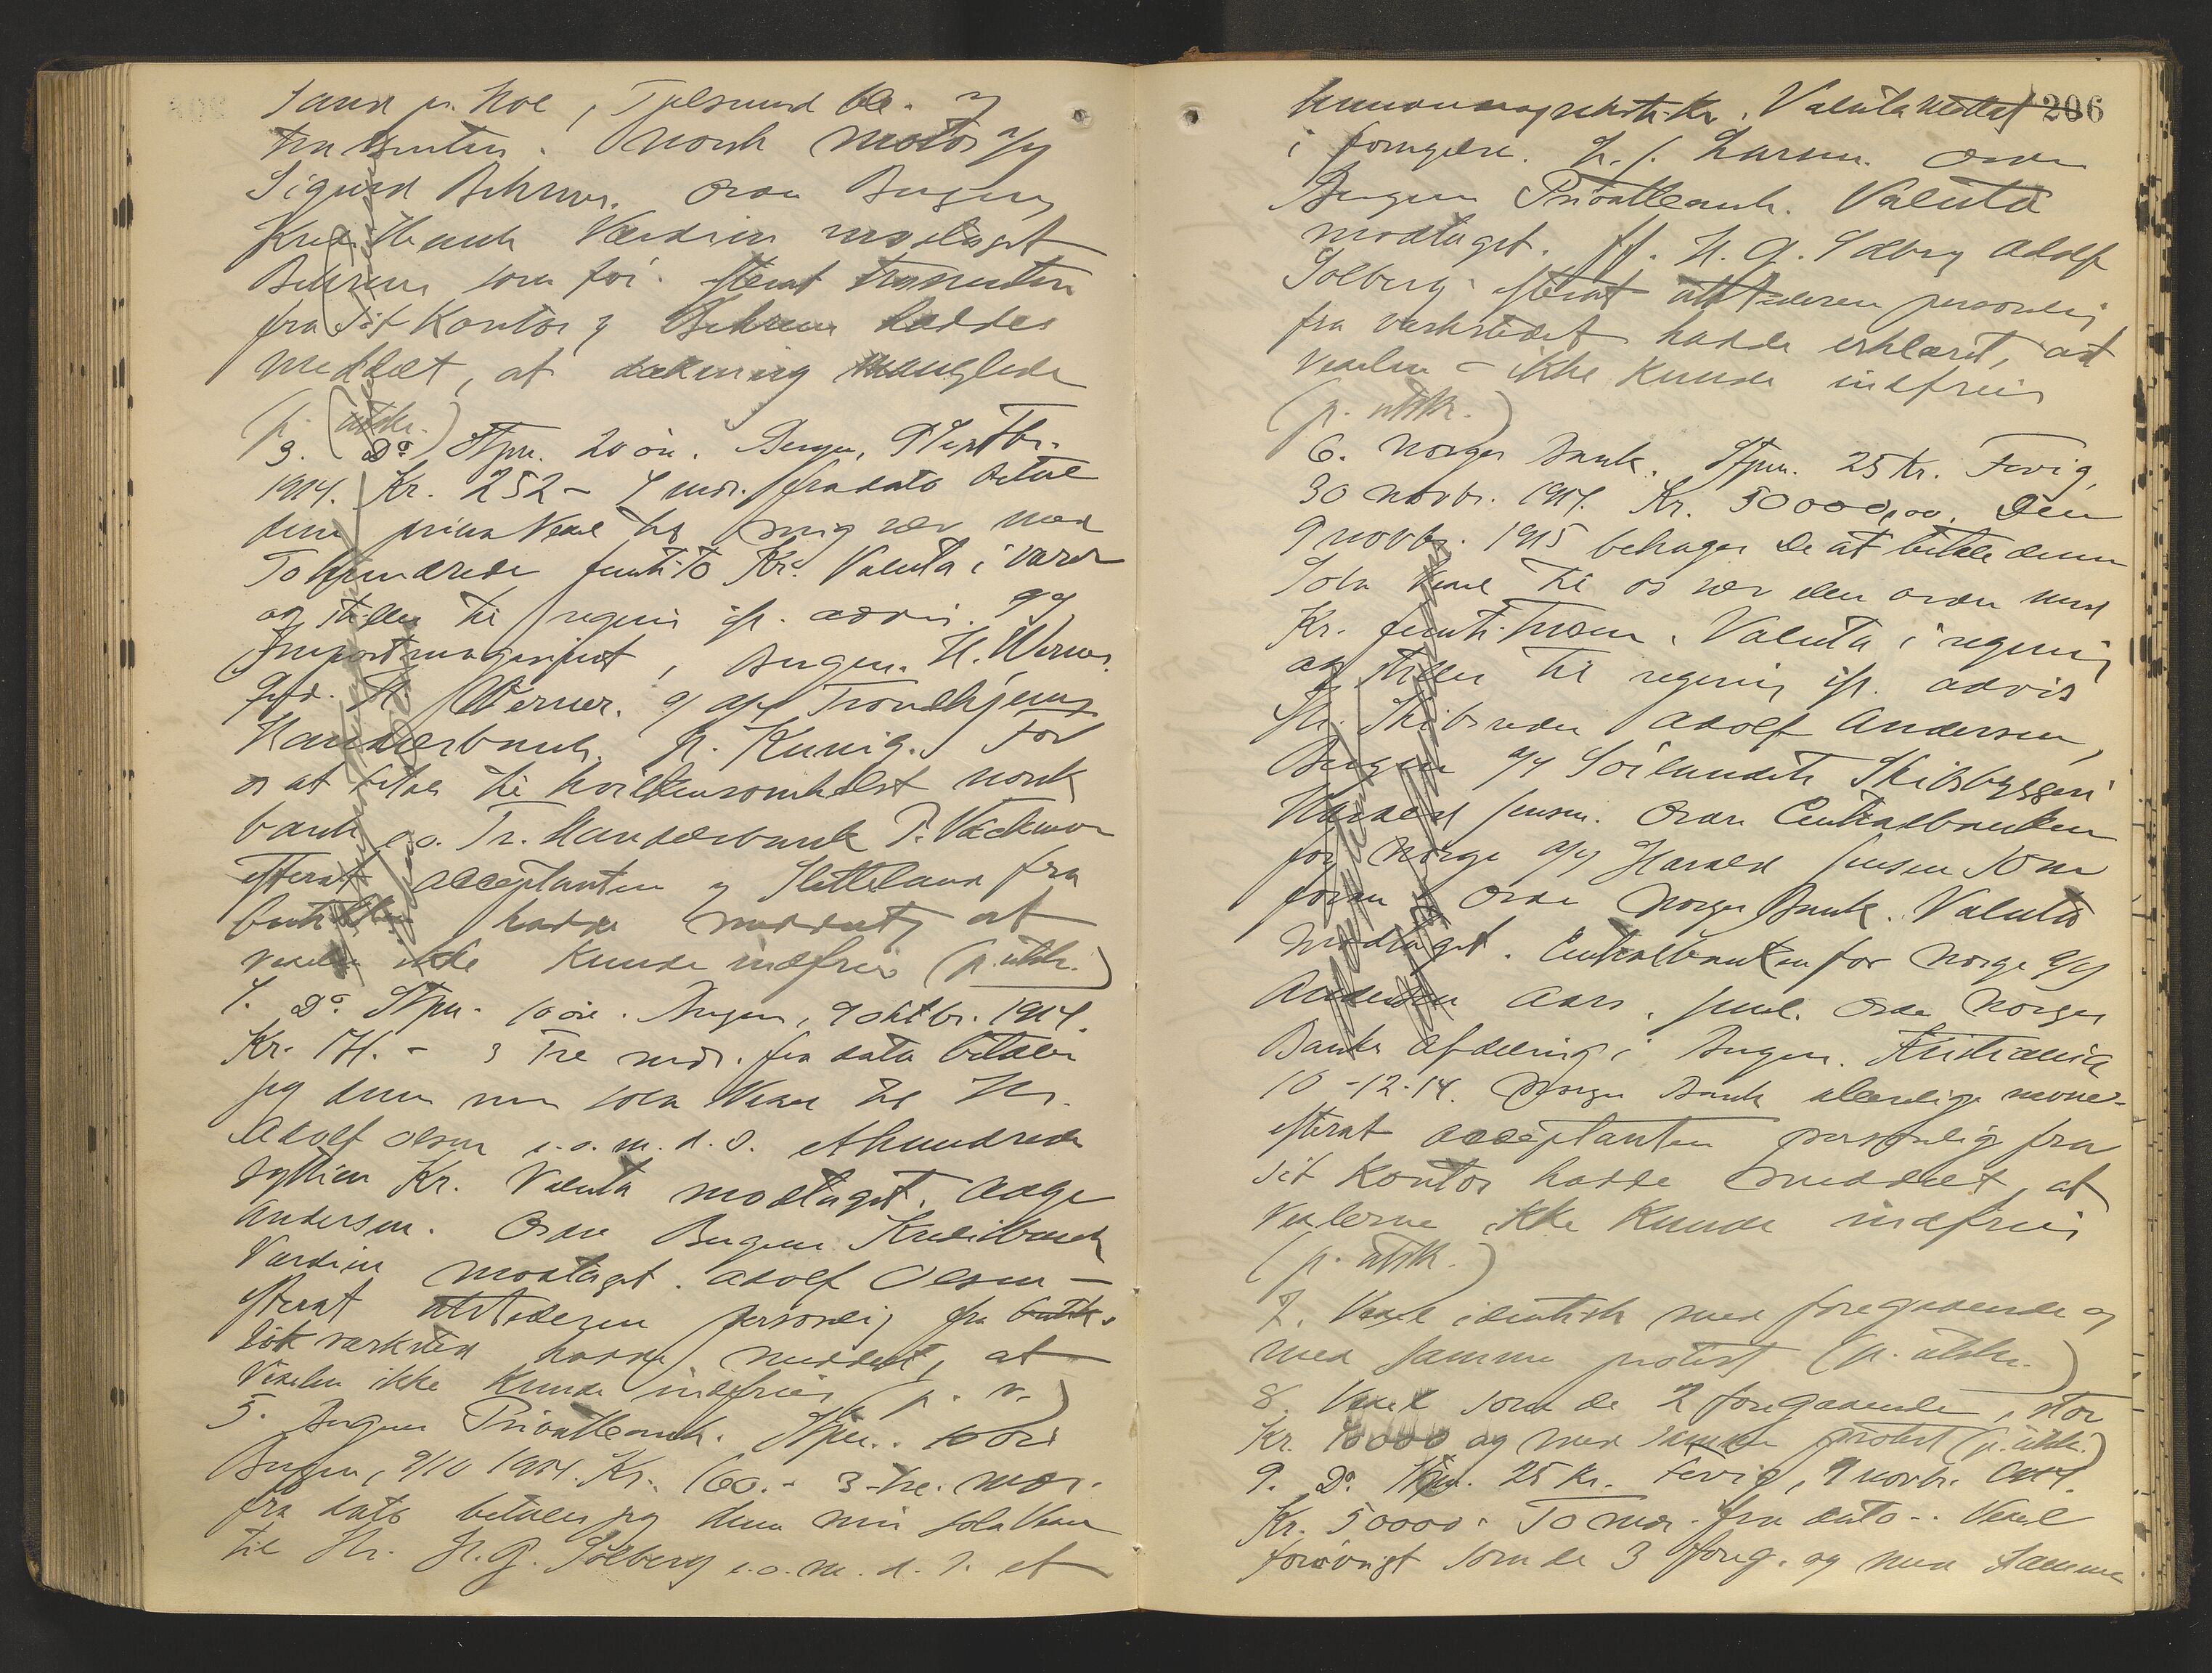 og
Norsk Motor a/s
Sigurd Behrens. Ordre Bergens
Kreditbank Værdien modtaget
Behrens som før. efterat trassenten
fra sit Kontor og Behrens hadde
meddelt, at dækning manglede
(p. utskr.)
3. Do Stpn. 20 øre. Bergen, 9 Septbr.
1914. Kr. 252 - 4 mdr. fra dato betal
denne prima Vexel til mig selv med
To hundrede femti to Kr. Valuta i varer
og stilles til regning ifl. advis.
Importmagasinet, Bergen. H. Werner.
H. Werner. a/s Trondhjems
Handelsbank. For
os at betale til hvilkensomhelst norsk
bank Tr. Handelsbank P.
efterat acceptanten og Sletteland fra
butikken hadde meddelt at
vexelen ikke kunde indfries (p. utskr.)
4. Do Stpn. 10 øre. Bergen, 9 oktbr. 1914.
Kr. 171. - 3 Tre mdr. fra dato betaler
jeg denne min sola Vexel til Hr.
Adolf Olsen e.o.m.d.S. ethundrede
Kr. Valuta modtaget. Aage
Andersen. Ordre Bergens Kreditbank
Værdien modtaget. Adolf Olsen -
efterat utstederen personlig fra butik.
sit verksted hadde meddelt, at
Vexelen ikke kunde indfries (p. v.)
5. Bergens Privatbank. Stpn. 10 øre
Bergen, 9/10 1914. Kr. 160. - 3 - tre. mdr.
fra dato betaler jeg denne min sola Vexel
til Hr. H. G. Solberg e.o.m.d.S. et
206
hundreogseksti Kr. Valuta
i fornyelse. Larsen. Ordre
Bergens Privatbank. Valuta
modtaget. H. G. Solberg Adolf
Solberg efterat utstederen personlig
fra verkstedet hadde erklæret, at
vexelen ikke kunde indfries
(p. utskr.)
6. Norges Bank. Stpn. 25 Kr. Fevig,
30 novbr. 1914. Kr. 50000,00. Den
9 novbr. 1915 behager De at betale denne
Sola Vexel til os selv eller ordre med
Kr. femti tusen. Valuta i regning
og stilles til regning ifl. advis
Hr. Skibsreder Adolf Andersen,
Bergen a/s Sørlandets Skibsbyggeri
Harald Jensen. Ordre Centralbanken
for Norge a/s Harald Jensen som
foran ordre Norges Bank. Valuta
modtaget. Centralbanken for Norge a/s
Andersen Aars. ordre Norges
Banks afdeling i Bergen. Kristiania
10-12-14. Norges Bank
efterat acceptanten personlig fra
sit Kontor hadde meddelt, at
Vexlerne ikke kunde indfries
(p. utskr.)
7. Vexel identisk med foregaaende og
med samme protest (p. utskr.)
8. Vexel som de 2 foregaaende, stor
Kr. og med samme protest (p. utskr.)
9. Do Stpn. 25 Kr. Fevig, 9 novbr. 1914.
Kr. 50000. To mdr. fra dato -. Vexel
forøvrigt som de 3 foreg. og med samme